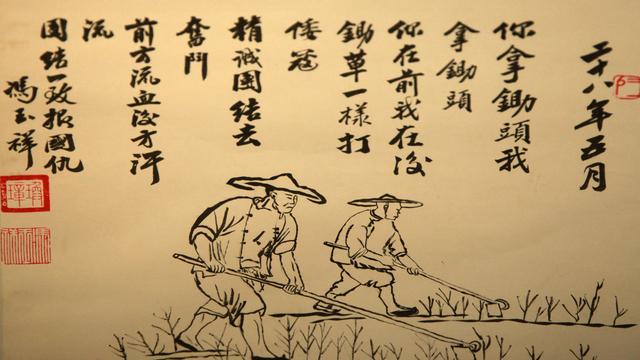 二十八年五月
你拿鋤頭我
拿鋤頭
你在前我在後
鋤草一樣打
倭寇
精誠團結去
奮鬥
前方流血後方汗
流
團結一致报國仇
馮玉祥